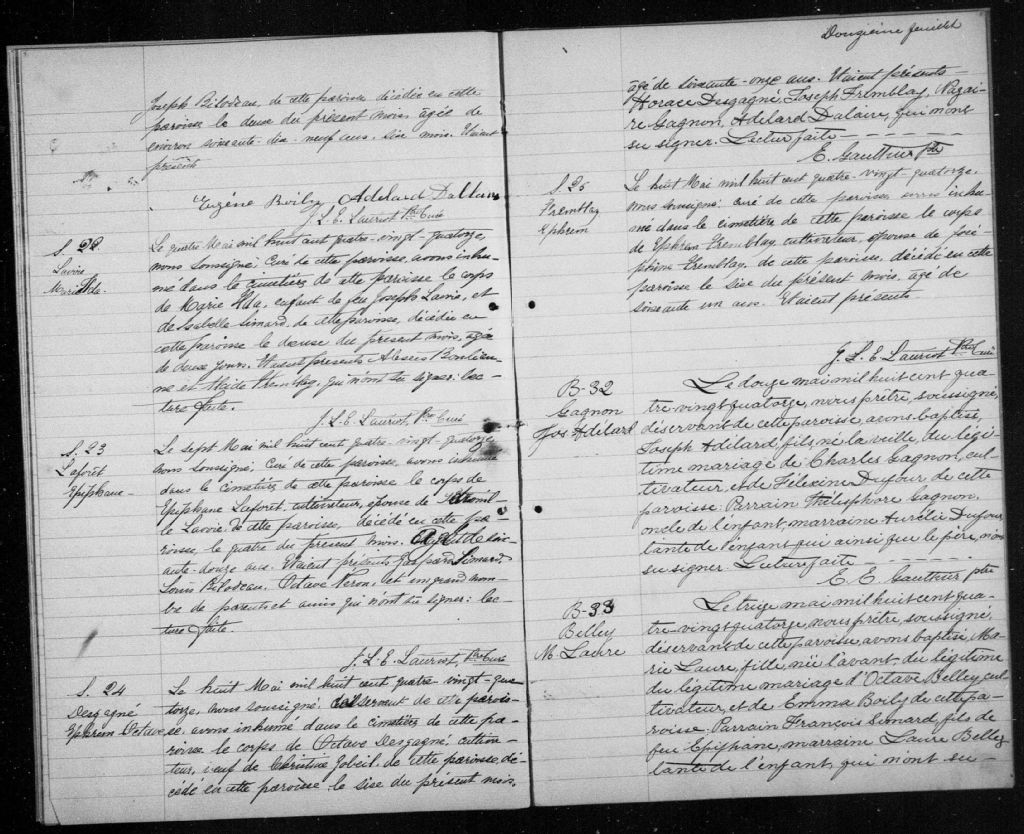 Joseph Bilodeau, de cette paroisse décédée en cette
paroisse le deux du présent mois, âgée de
environ soixante-dix-neuf ans, six mois. Etaient
présents
Eugène Boily Adelard Dallaire
J. L. E. Lauriot Ptre Curé
S. 22
Lavoie
Marie Alda
Le quatre Mai mil huit cent quatre-vingt-quatorze,
nous soussigné Curé de cette paroisse, avons inhu-
mé dans le cimetière de cette paroisse le corps
de Marie Alda, enfant de feu Joseph Lavoie, et
de Isabelle Simard, de cette paroisse, décédée en
cette paroisse le deux du présent mois, agée
de deux jours. Etaient présents Alexis
ne et Tremblay, qui n'ont su signer: lec-
ture faite.
J. L. E. Lauriot Ptre Curé
S. 23
Laforêt
Epiphane
Le sept Mai mil huit cent quatre-vingt-quatorze
nous soussigné Curé de cette paroisse, avons inhumé
dans le cimetière de cette paroisse le corps de
Epiphane Laforet, cultivateur, époux de
le Lavoie de cette paroisse, décédé en cette pa-
roisse, le quatre du présent mois, agé de soix-
ante-douze ans. Etaient présents Gaspard Simard,
Louis Bilodeau, Octave Néron, et un grand nom-
bre de parents et amis qui n'ont su signer: lec-
ture faite.
J. L. E. Lauriot, Ptre Curé
S. 24
Desgagné
Ephrem Octave
Le huit Mai mil huit cent quatre-vingt-qua-
torze, nous soussigné, desservant de cette parois-
se, avons inhumé dans le cimetière de cette pa-
roisse le corps de Octave Desgagné cultiva-
teur, veuf de Christine Gobeil de cette paroisse, dé-
cédé en cette paroisse le six du présent mois,
Douzième feuillet
âgé de soixante-onze ans. Etaient présents
Horace Desgagné, Joseph Tremblay, Nazai-
re Gagnon, Adélard Dalaire, qui n'ont
su signer. Lecture faite
E. Gauthier ptre
S. 25
Tremblay
Ephrem
Le huit Mai mil huit cent quatre-vingt-quatorze,
nous soussigné curé de cette paroisse avons inhu-
mé dans le cimetière de cette paroisse le corps
de Ephrem Tremblay, cultivateur, époux de José-
phine Tremblay, de cette paroisse, décédé en cette
paroisse le six du présent mois, agé de
soixante un ans. Etaient présents
J. L. E. Lauriot Ptre Curé
B-32
Gagnon
Jos Adélard
Le douze mai mil huit cent qua-
tre-vingt quatorze, nous prêtre, soussigné,
déservant de cette paroisse avons baptisé,
Joseph Adélard, fils né la veille, du légi-
time mariage de Charles Gagnon, cul-
tivateur, et de Félexine Dufour de cette
paroisse. Parrain Thélesphore Gagnon,
oncle de l'enfant, marraine Aurélie Dufour,
tante de l'enfant qui ainsi que le père, n'ont
su signer. Lecture faite
E. E. Gauthier ptre
B-33
Belley
M. Laure
Le treize mai mil huit cent qua-
tre-vingt quatorze, nous prêtre, soussigné,
déservant de cette paroisse, avons baptisé, Ma-
rie Laure, fille, née l'avant du légitime
du légitime mariage d'Octave Belley, cul-
tivateur, et de Emma Boily de cette pa-
roisse. Parrain François Simard, fils de
feu Epiphane, marraine Laure Belley
tante de l'enfant, qui n'ont su-